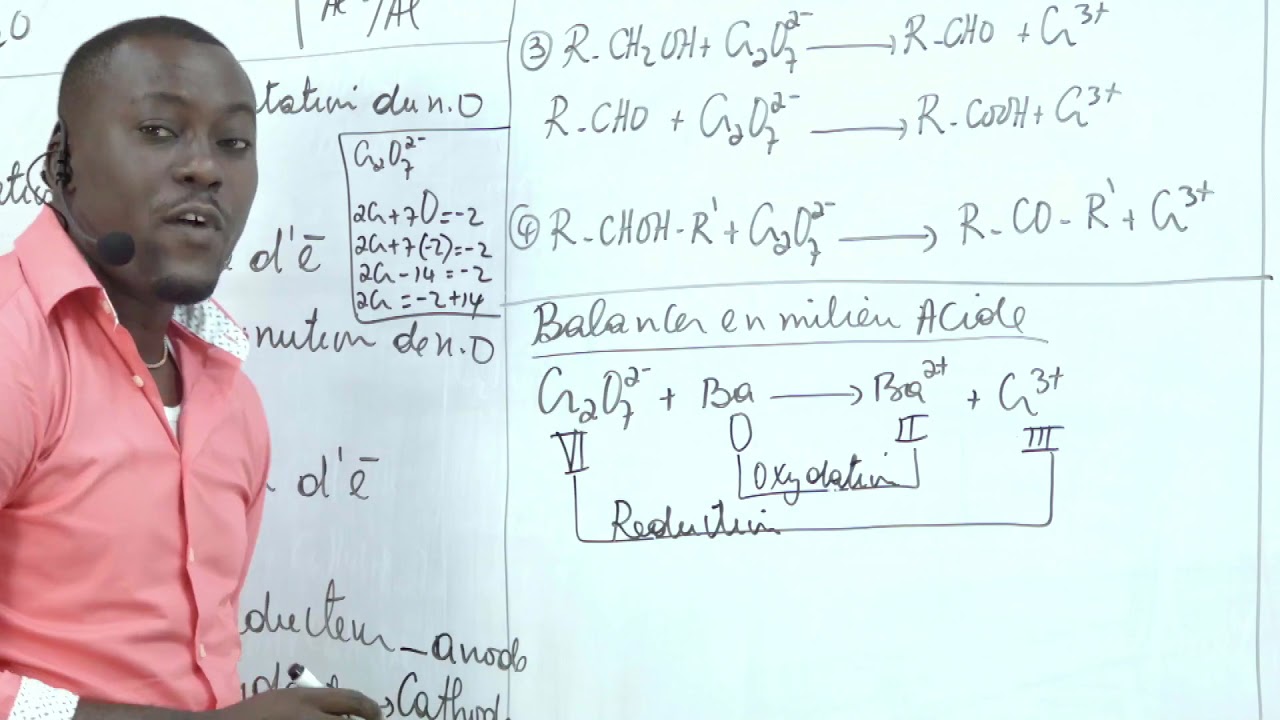 Al /Al
tation du n.O
Cr₂O₇²⁻
2Cr+7O=-2
2Cr+7(-2)=-2
2Cr-14=-2
2Cr=-2+14
d'ē
nution de n.O
d'ē
ducteur_anode
→Cathod
③ R-CH₂OH+ Cr₂O₇²⁻ ⟶ R-CHO + Cr³⁺
R-CHO + Cr₂O₇²⁻ ⟶ R-COOH+ Cr³⁺
④ R-CHOH-R'+ Cr₂O₇²⁻ ⟶ R-CO-R'+ Cr³⁺
Balancer en milieu Acide
Cr₂O₇²⁻ + Ba ⟶ Ba²⁺ + Cr³⁺
VI O II III
Oxydation
Reduction